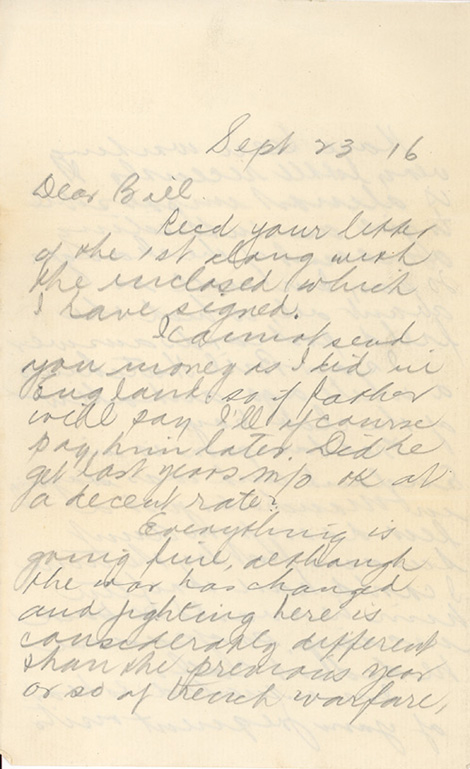 Sept 23 16
Dear Bill
Recd your letter
of the 1st along with
the inclosed which
I have signed.
I cannot send
you money as I did in
England so if father
will pay I'll of course
pay him later. Did he
get last years ok at
a decent rate?
Everything is
going fine, although
the war has changed
and fighting here is
considerably different
than the previous year
or so of trench warfare,